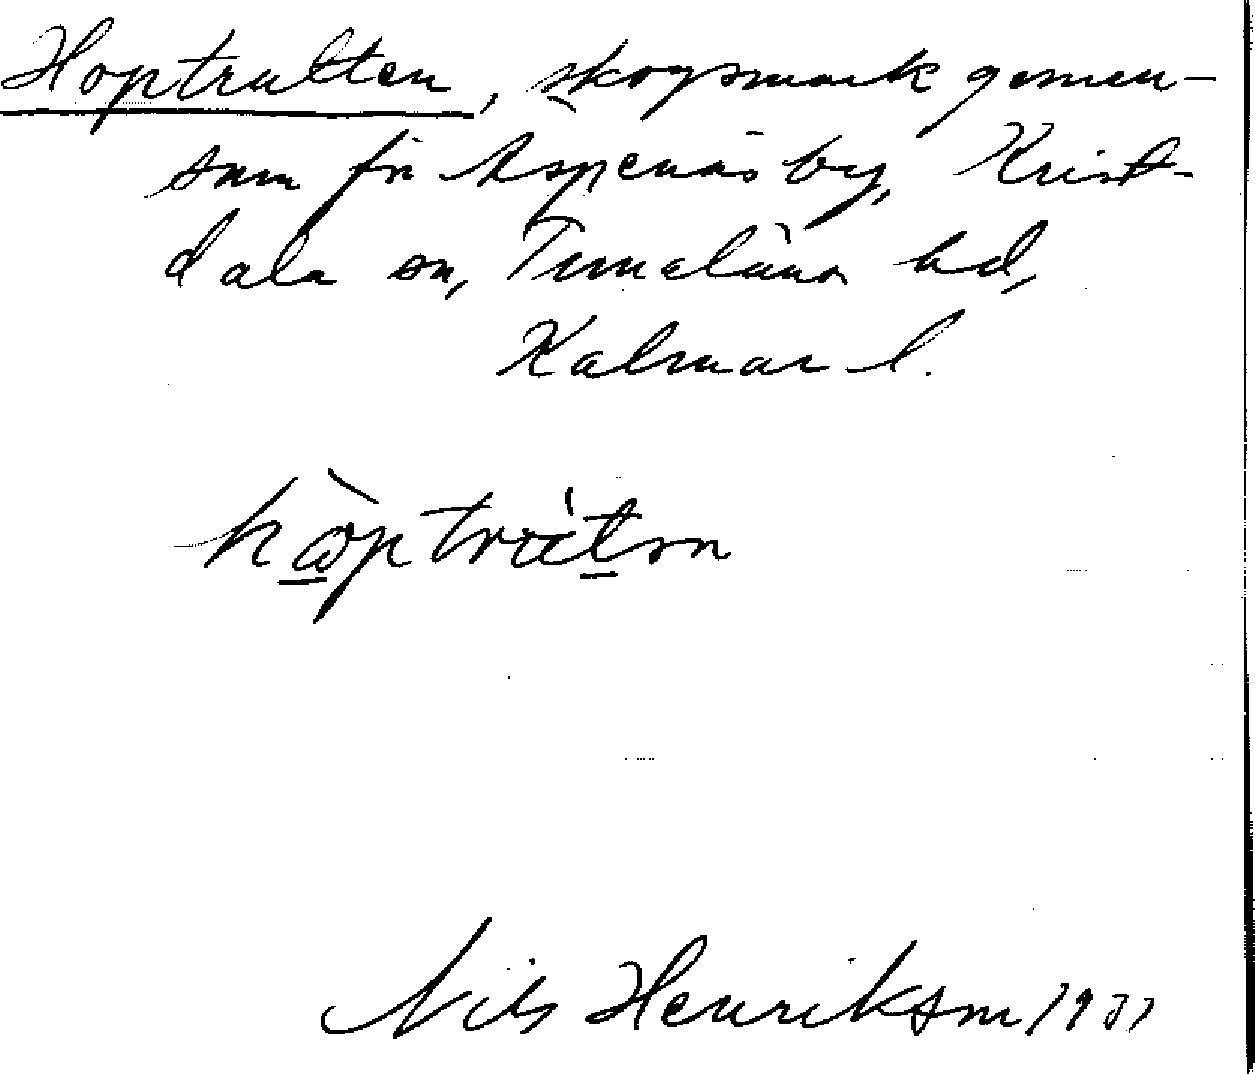 Hoptratten, skogsmark gemen-
sam för Aspenäs by, Krist-
dala sn, Tunaläns hd,
Kalmar l.
Nils Henriksson 1937